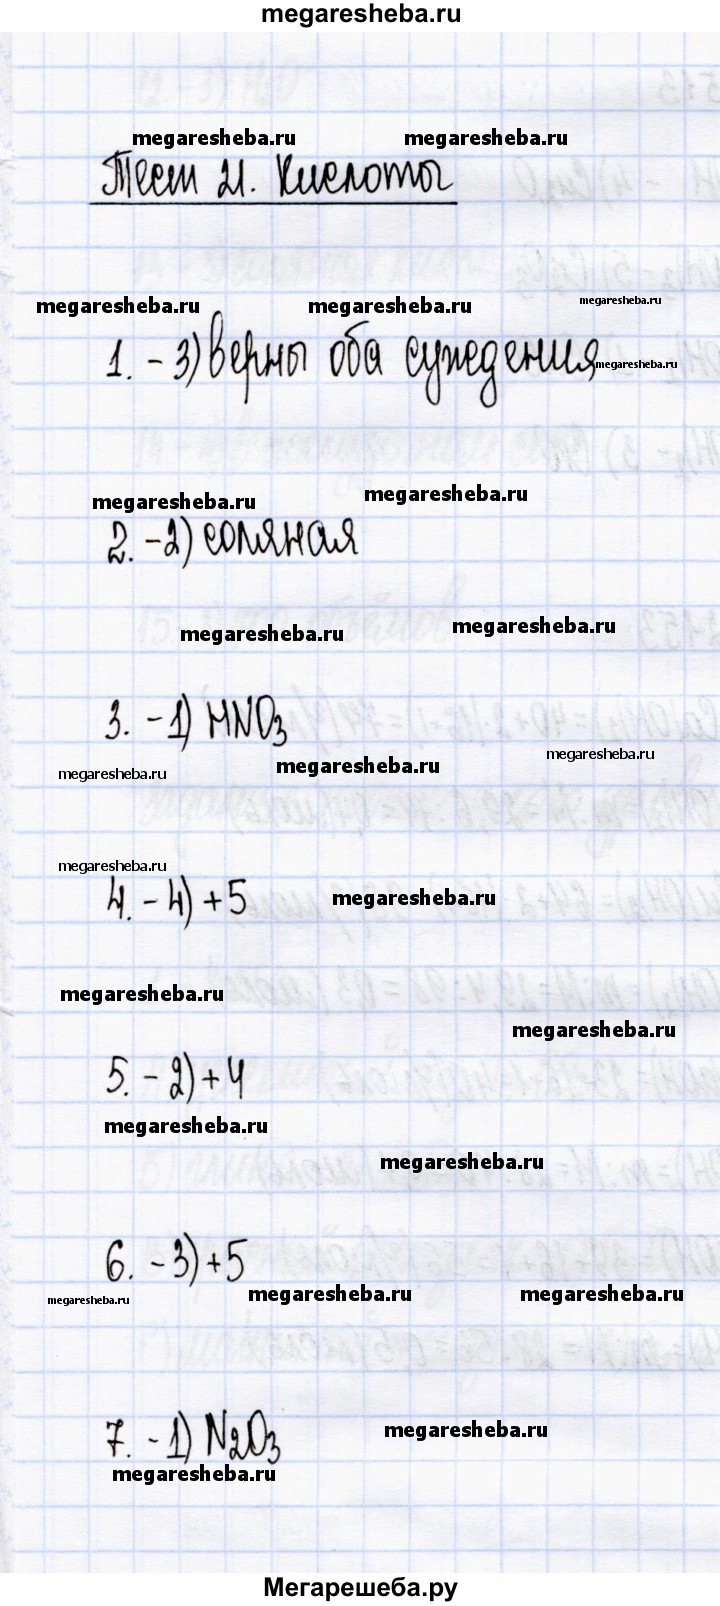 megaresheba.ru
megaresheba.ru megaresheba.ru
Тест 21. Кислоты
megaresheba.ru megaresheba.ru megaresheba.ru
1. - 3) верны оба суждения
megaresheba.ru
megaresheba.ru megaresheba.ru
2. - 2) соляная
megaresheba.ru megaresheba.ru
3. - 1) HNO3
megaresheba.ru megaresheba.ru megaresheba.ru
megaresheba.ru
4. - 4) + 5
megaresheba.ru
megaresheba.ru megaresheba.ru
5. - 2) + 4
megaresheba.ru
megaresheba.ru
6. - 3) + 5
megaresheba.ru megaresheba.ru megaresheba.ru
7. - 1) N2O3
megaresheba.ru
megaresheba.ru
Мегарешеба.ру